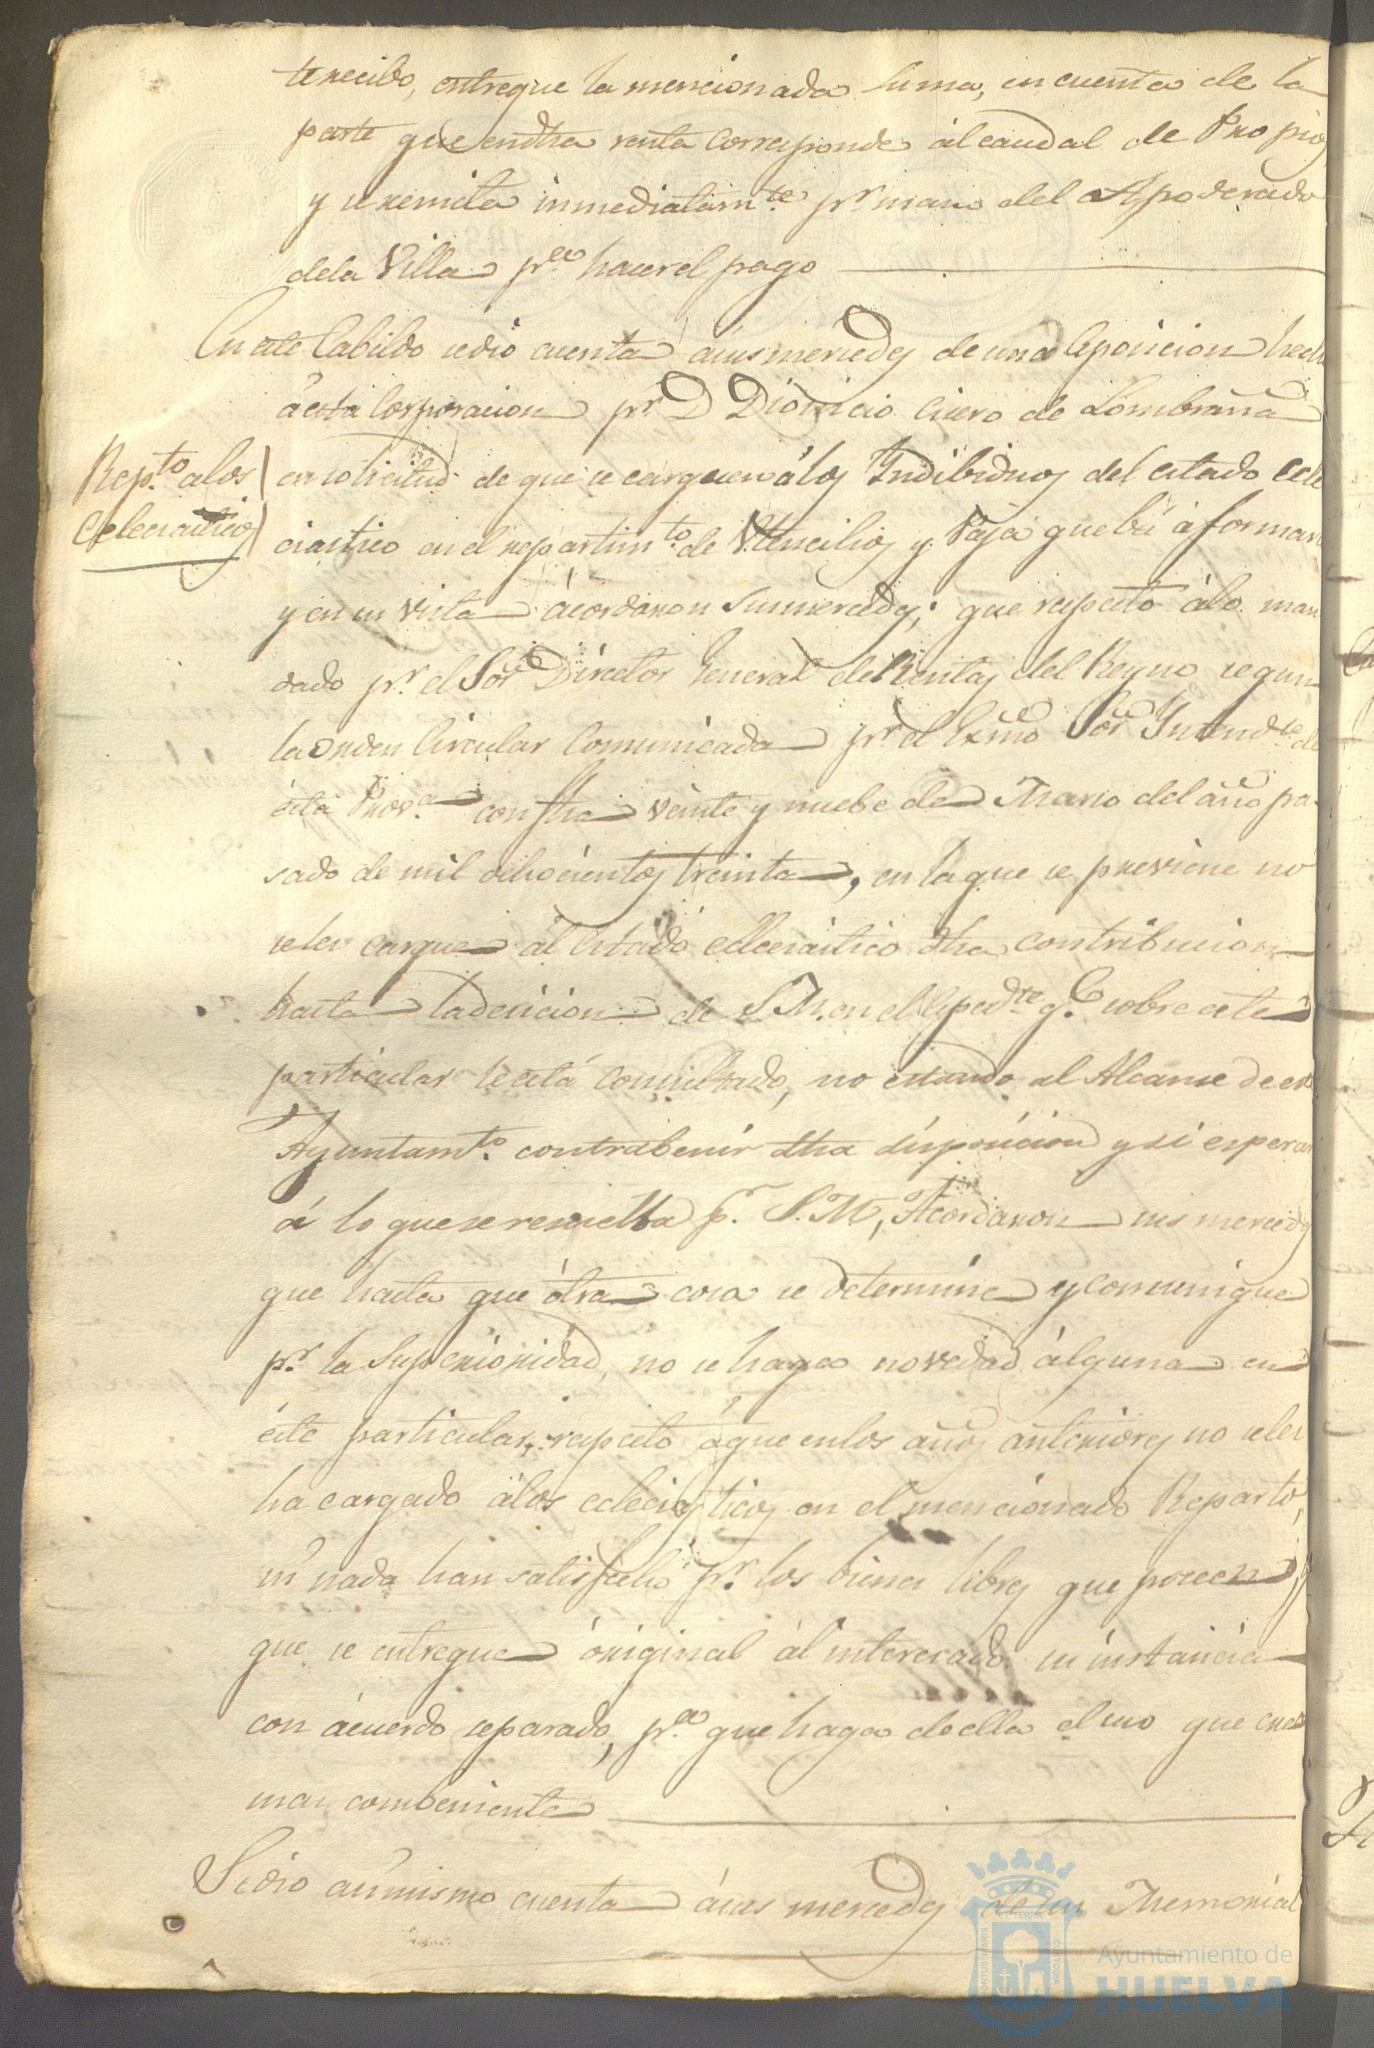 te recibo, entregue la mencionada suma, en cuenta de la
parte que en dha renta corresponde al caudal de Propios
y se remita inmediatamte pr mano del Apoderado
de la Villa pa hacer el pago
En este Cabildo se dio cuenta á sus mercedes de una Exposicion hecha
á esta Corporacion pr D Dionicio Cicero de Lombraña
Repto a los
Eclesiasticos
en solicitud de que se carguen á los Indibiduos del estado ecle
ciastico en el repartimto de Utencilios y Paja que bá á formar
y en su vista ácordaron Sus mercedes; que respecto á lo man
dado pr el Sor Director General de Rentas del Reyno segun
la orden Circular Comunicada pr el Exmo Sor Intendte de
ésta Prova con fha veinte y nuebe de Marzo del año pa
sado de mil ochocientos treinta, en la que se previene no
se les cargue al estado ecleciastico dha contribucion
hasta la decicion de S M. en el Expedte qe sobre este
particular se está consultado, no estando al Alcance de este
Ayuntamto contrabenir dha disposicion y si esperar
á lo que se resuelba pr S. M, Acordaron sus mercedes
que hasta que ótra cosa se determine y comunique
pr la Superioridad, no se haga novedad álguna en
éste particular, respecto á que en los años anteriores no se les
ha cargado á los ecleciasticos en el mencionado Reparto,
ni nada han satisfecho pr los bienes libres que poseen y
que se entregue óriginal ál interesado su instancia
con ácuerdo separado, pa que haga de ella el uso que crea
mas combeniente
Se dio asimismo cuenta á sus mercedes de un Memorial
PORTUS MARIS
ET TERRAE
CUSTODIA
Ayuntamiento de
HUELVA